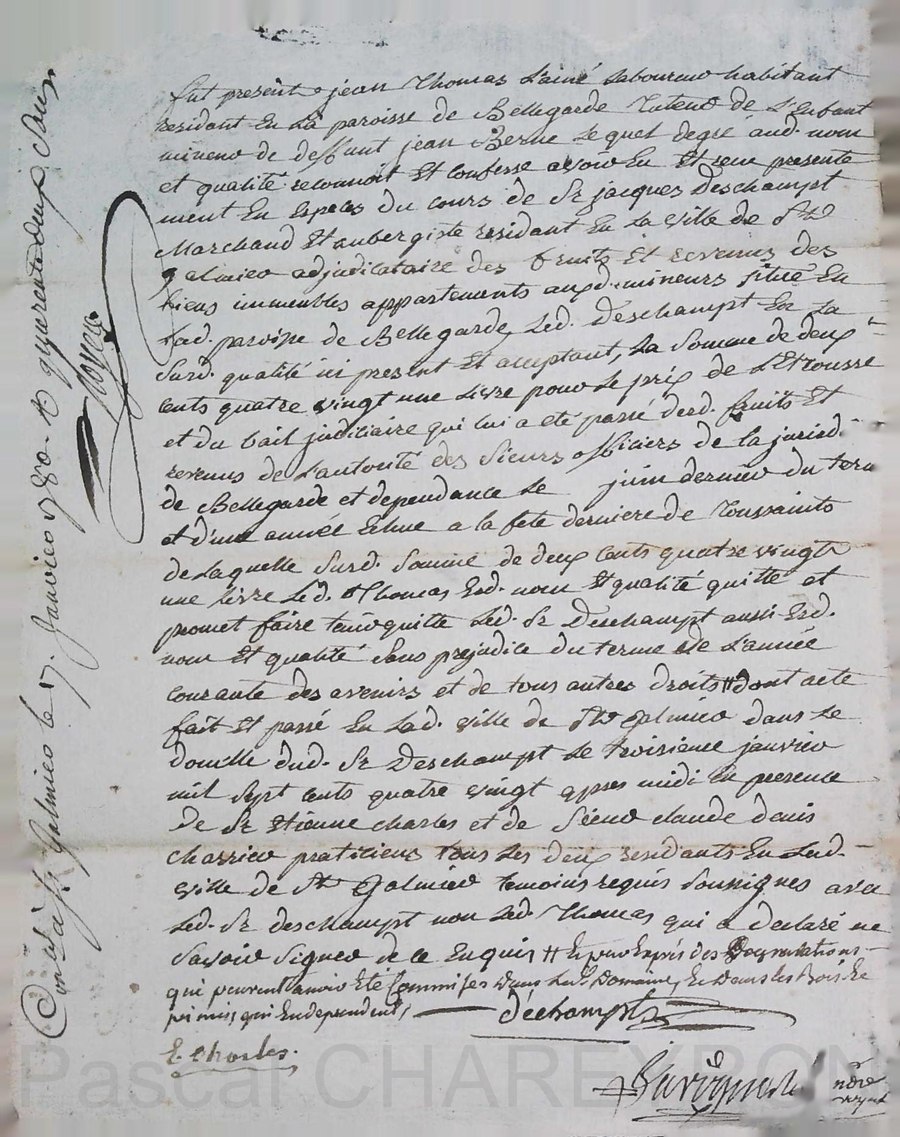 fut present jean Thomas L'ainé Laboureur habitant
residant En La paroisse de Bellegarde Tuteur de L'Enfant
mineur de deffunt jean Berne Lequel degré aud. nom
et qualité reconnoit Et confesse avoir Eu Et reçu presente
ment En Especes du cours de Sr jacques Deschampt
Marchand Et aubergiste residant En La Ville de St
galmier adjudicataire des fruits Et revenus des
biens immeubles appartenants auxd. mineurs situé En
lad. paroisse de Bellegarde, Led. Deschampt En La
Surd. qualité ici present Et acceptant, La Somme de deux
cents quatre vingt une Livre pour Le prix de L'Etrousse
et du bail judiciaire qui lui a été passé desd. fruits Et
revenus de L'autorité des Sieurs officiers de la jurisd.
de Bellegarde et dependance Le juin dernier du term
et d'une année Echue a la fete derniere de Toussaints
de Laquelle Surd. Somme de deux Cents quatre vingt
une livre Led. Thomas Esd. nom Et qualité quitte et
promet faire tenir quitte Led. Sr Deschampt aussi Esd.
nom Et qualité Sans prejudice du terme de L'année
courante des avenirs et de tous autres droits # dont acte
fait Et passé En Lad. ville de St Galmier dans Le
domille dud. Sr Deschampt Le troisieme janvier
mil Sept Cents quatre vingt apres midi En presence
de Sr Etienne Charles et de Sieur claude denis
Charrier praticiens tous Les deux residants En Lad.
Ville de St Galmier temoins requis Soussignes avec
Led. Sr deschampt non Led. Thomas qui a declaré ne
Savoir Signer de ce Enquis # Et par Exprés des Degradations
qui peuvent avoir Eté Commises Dans led. Domaine, Et Dans les Bois Et
qui En dependent,
déchampt
E. Charles.
nore
royal
Controllé a St Galmier le 17. Janvier 1780. R quarente deux Sous
Noyer
Pascal CHAREYRON